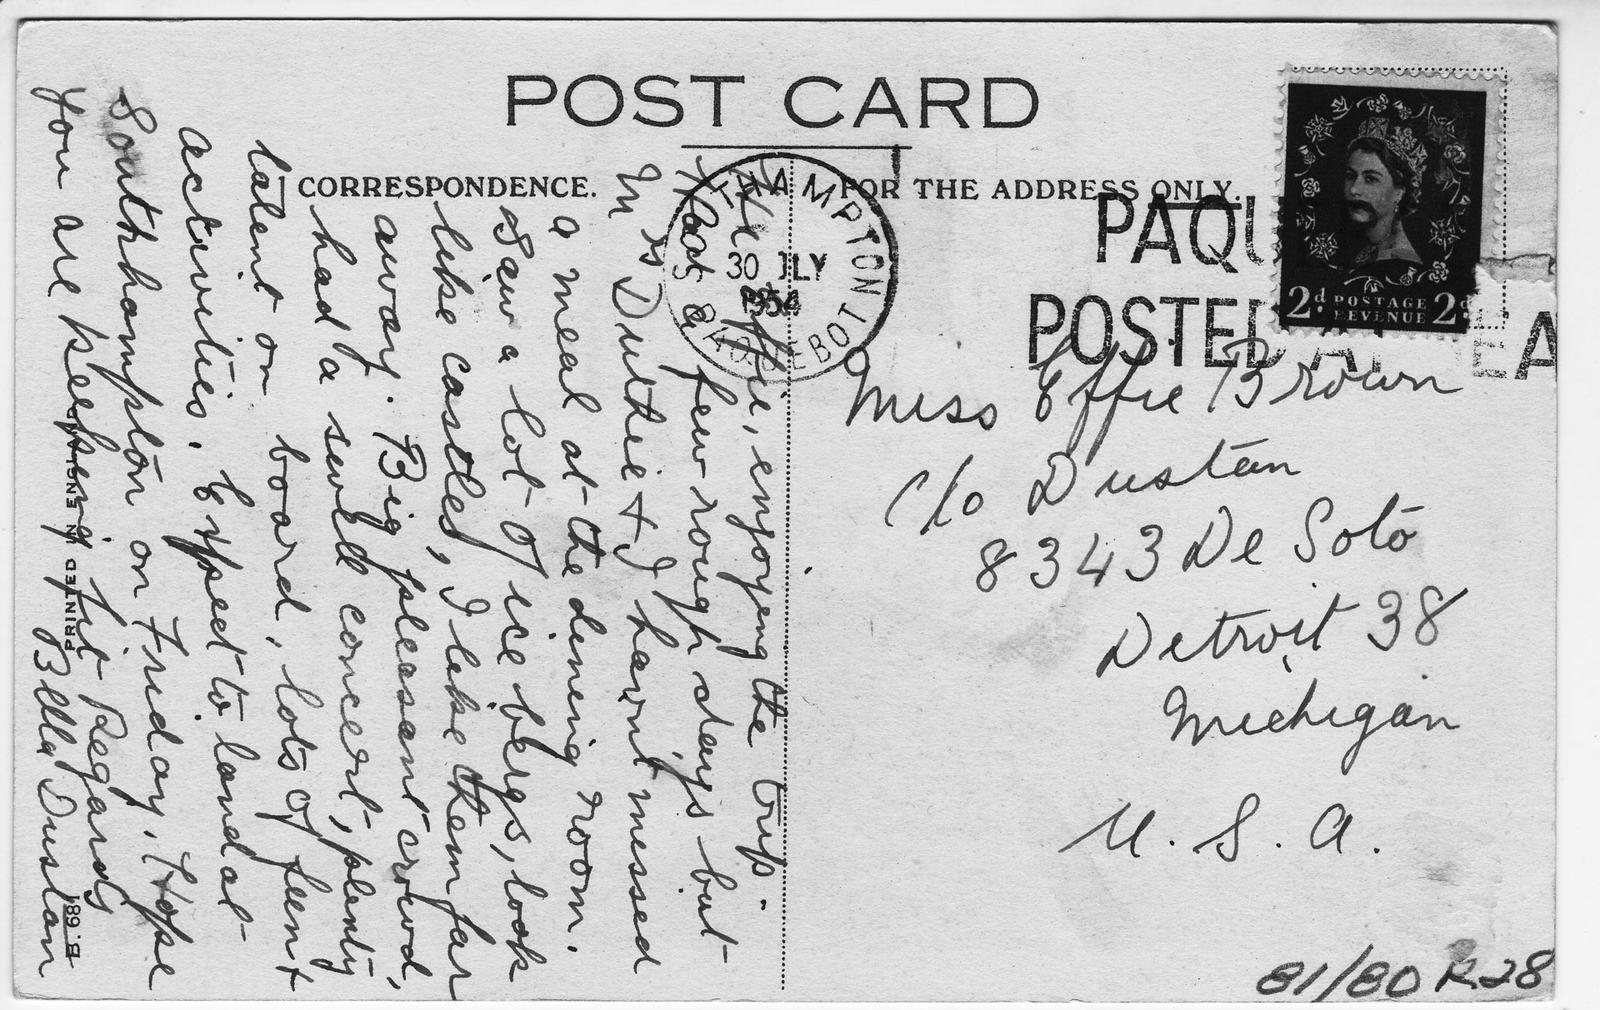 POST CARD
CORRESPONDENCE.
FOR THE ADDRESS ONLY.
Effie, enjoyeng the trip.
Had a few rough days but
Mrs Duthie & I havnt missed
a meal at the dineing room.
Saw a lot of ice bergs, look
like castles, I like them far
away. Big pleasant crowd,
had a swell concert, plenty
talent on board, lots of feent
activities. Expect to land at
Southhampton on Friday, Hope
you are keeping fit Regards
Bella Dustan
PRINTED IN ENGLAND
B.681
HAMPTON
30 JLY
1954
PAQU
POSTED AT EA
2d POSTAGE 2d
REVENUE
Miss Effie Brown
c/o Dustan
8343 De Soto
Detroit 38
Michigan
U. S. A.
81/80 R.28